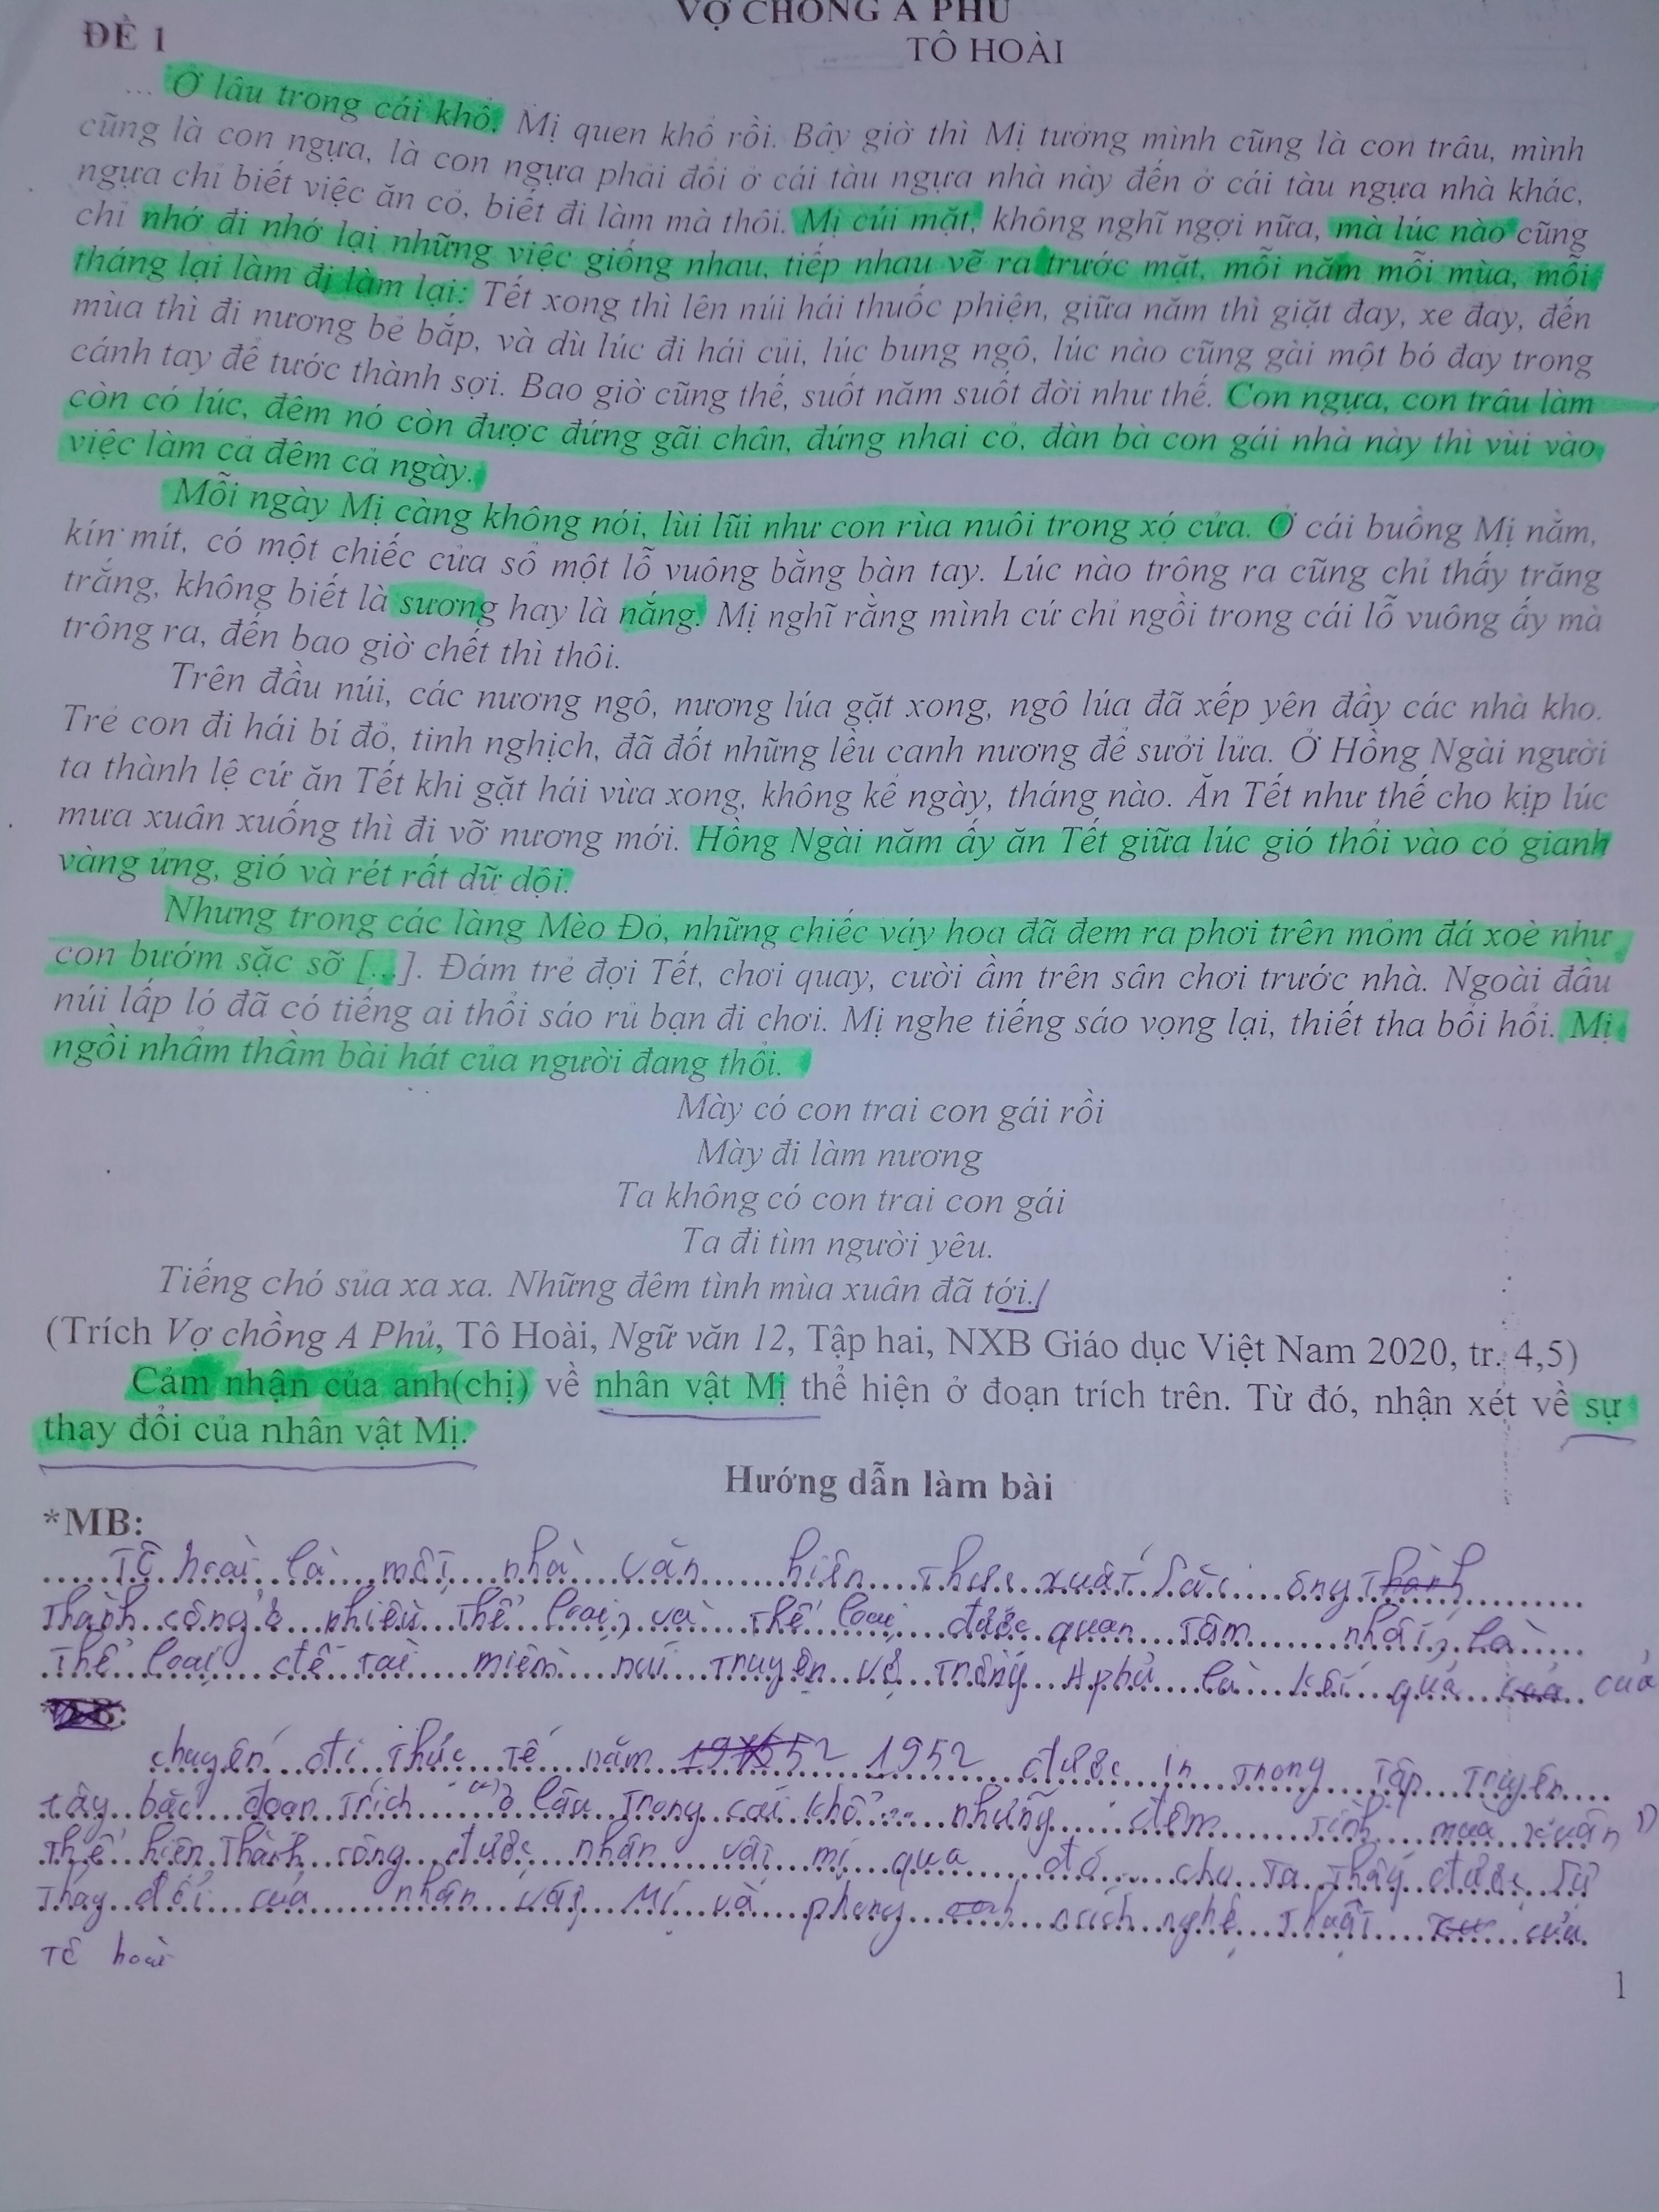 VỢ CHỒNG A PHỦ
ĐỀ 1
TÔ HOÀI
... Ở lâu trong cái khổ, Mị quen khổ rồi. Bây giờ thì Mị tưởng mình cũng là con trâu, mình
cũng là con ngựa, là con ngựa phải đổi ở cái tàu ngựa nhà này đến ở cái tàu ngựa nhà khác,
ngựa chỉ biết việc ăn cỏ, biết đi làm mà thôi. Mị cúi mặt, không nghĩ ngợi nữa, mà lúc nào cũng
chỉ nhớ đi nhớ lại những việc giống nhau, tiếp nhau vẽ ra trước mặt, mỗi năm mỗi mùa, mỗi
tháng lại làm đi làm lại: Tết xong thì lên núi hái thuốc phiện, giữa năm thì giặt đay, xe đay, đến
mùa thì đi nương bẻ bắp, và dù lúc đi hái củi, lúc bung ngô, lúc nào cũng gài một bó đay trong
cánh tay để tước thành sợi. Bao giờ cũng thế, suốt năm suốt đời như thế. Con ngựa, con trâu làm
còn có lúc, đêm nó còn được đứng gãi chân, đứng nhai cỏ, đàn bà con gái nhà này thì vùi vào
việc làm cả đêm cả ngày.
Mỗi ngày Mị càng không nói, lùi lũi như con rùa nuôi trong xó cửa. Ở cái buồng Mị nằm,
kín mít, có một chiếc cửa sổ một lỗ vuông bằng bàn tay. Lúc nào trông ra cũng chỉ thấy trăng
trắng, không biết là sương hay là nắng. Mị nghĩ rằng mình cứ chỉ ngồi trong cái lỗ vuông ấy mà
trông ra, đến bao giờ chết thì thôi.
Trên đầu núi, các nương ngô, nương lúa gặt xong, ngô lúa đã xếp yên đầy các nhà kho.
Trẻ con đi hái bí đỏ, tinh nghịch, đã đốt những lều canh nương để sưởi lửa. Ở Hồng Ngài người
ta thành lệ cứ ăn Tết khi gặt hái vừa xong, không kể ngày, tháng nào. Ăn Tết như thế cho kịp lúc
mưa xuân xuống thì đi vỡ nương mới. Hồng Ngài năm ấy ăn Tết giữa lúc gió thổi vào cỏ gianh
vàng ửng, gió và rét rất dữ dội.
Nhưng trong các làng Mèo Đỏ, những chiếc váy hoa đã đem ra phơi trên mỏm đá xoè như
con bướm sặc sỡ [...]. Đám trẻ đợi Tết, chơi quay, cười ầm trên sân chơi trước nhà. Ngoài đầu
núi lấp ló đã có tiếng ai thổi sáo rủ bạn đi chơi. Mị nghe tiếng sáo vọng lại, thiết tha bổi hổi. Mị
ngồi nhẩm thầm bài hát của người đang thổi.
Mày có con trai con gái rồi
Mày đi làm nương
Ta không có con trai con gái
Ta đi tìm người yêu.
Tiếng chó sủa xa xa. Những đêm tình mùa xuân đã tới./
(Trích Vợ chồng A Phủ, Tô Hoài, Ngữ văn 12, Tập hai, NXB Giáo dục Việt Nam 2020, tr. 4,5)
Cảm nhận của anh(chị) về nhân vật Mị thể hiện ở đoạn trích trên. Từ đó, nhận xét về sự
thay đổi của nhân vật Mị.
Hướng dẫn làm bài
*MB:
Tô hoài là một nhà văn hiện thực xuất sắc. ông
thành công ở nhiều thể loại, và thể loại được quan tâm nhất, là
thể loại đề tài miền núi truyện vợ trồng A phủ là kết quả của
chuyến đi thức tế năm 1952 được in trong tập truyện
tây bắc đoạn trích "ở lâu trong cái khổ... những đêm tình mùa xuân"
thể hiện thành công được nhân vật mị qua đó cho ta thấy được sự
thay đổi của nhân vật Mị và phong cách nghệ thuật của
Tô hoài
1